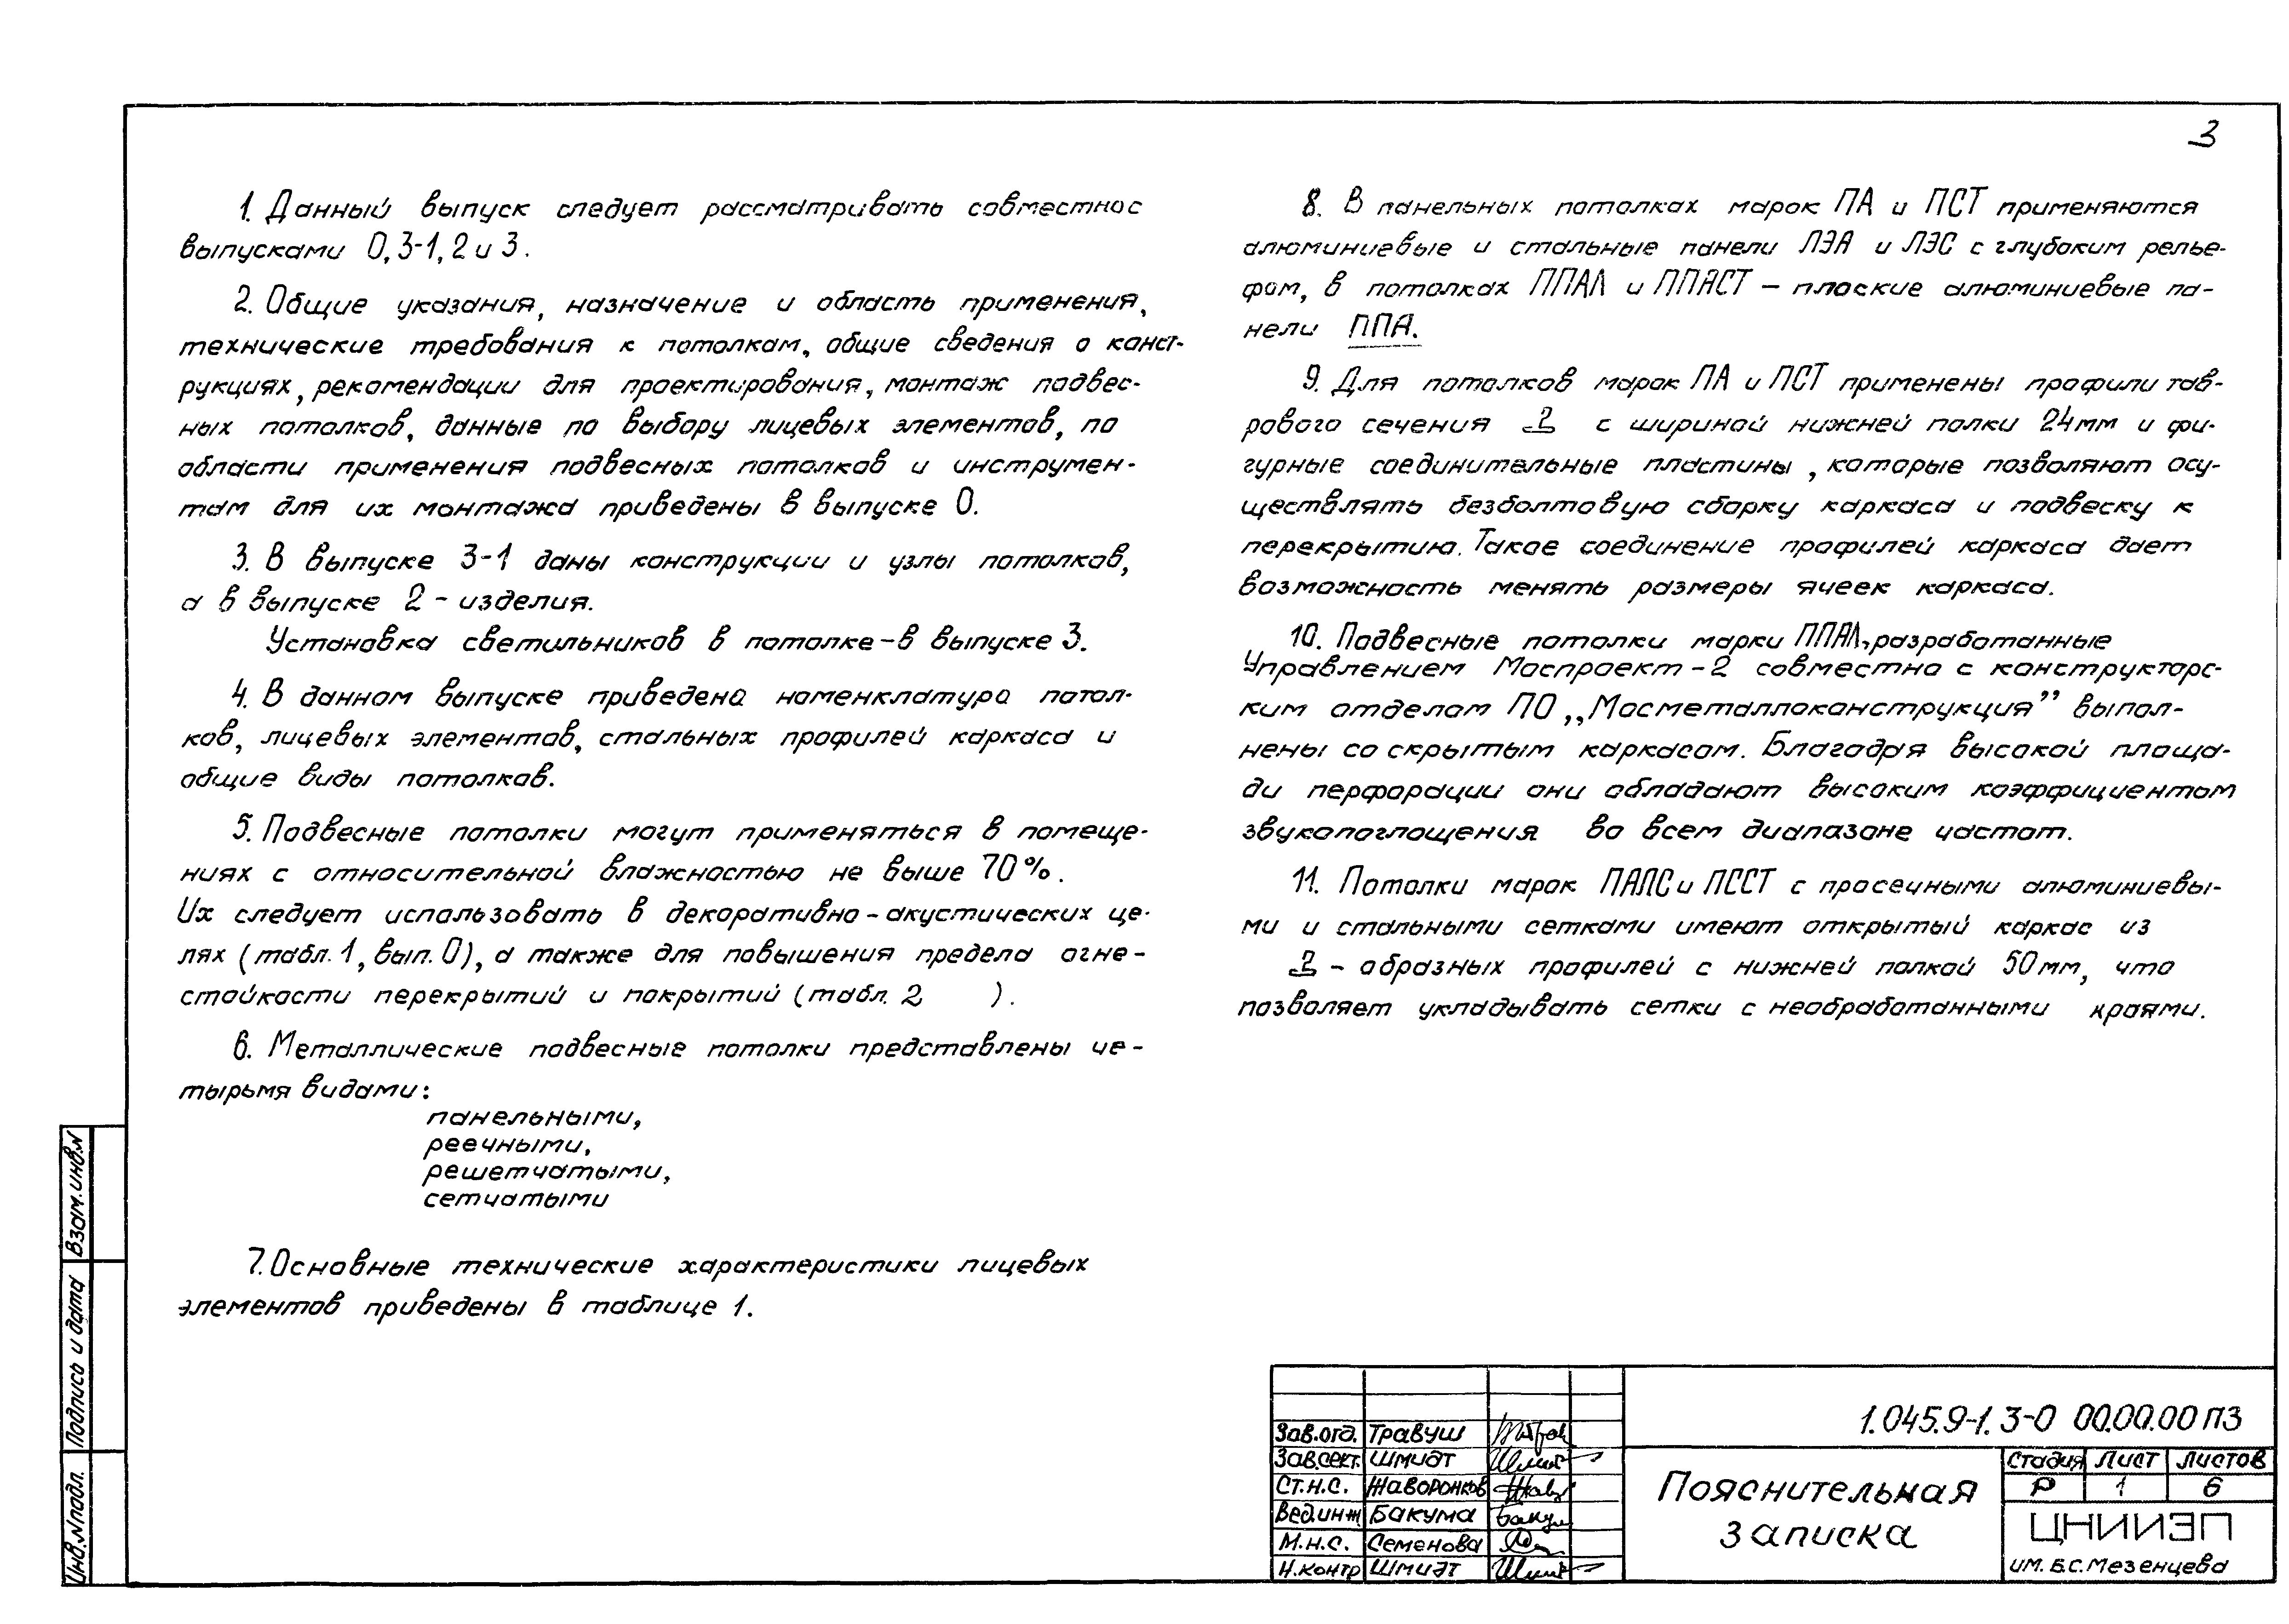 3
1. Данный выпуск следует рассматривать совместно с
выпусками 0, 3-1, 2 и 3.
2. Общие указания, назначение и область применения,
технические требования к потолкам, общие сведения о конст-
рукциях, рекомендации для проектирования, монтаж подвес-
ных потолков, данные по выбору лицевых элементов, по
области применения подвесных потолков и инструмен-
там для их монтажа приведены в выпуске 0.
3. В выпуске 3-1 даны конструкции и узлы потолков,
а в выпуске 2 - изделия.
Установка светильников в потолке - в выпуске 3.
4. В данном выпуске приведена номенклатура потол-
ков, лицевых элементов, стальных профилей каркаса и
общие виды потолков.
5. Подвесные потолки могут применяться в помеще-
ниях с относительной влажностью не выше 70%.
Их следует использовать в декоративно-акустических це-
лях (табл. 1, вып. 0), а также для повышения предела огне-
стойкости перекрытий и покрытий (табл. 2 ).
6. Металлические подвесные потолки представлены че-
тырьмя видами:
панельными,
реечными,
решетчатыми,
сетчатыми
7. Основные технические характеристики лицевых
элементов приведены в таблице 1.
8. В панельных потолках марок ПА и ПСТ применяются
алюминиевые и стальные панели ЛЭА и ЛЭС с глубоким релье-
фом, в потолках ППАЛ и ППАСТ - плоские алюминиевые па-
нели ППА.
9. Для потолков марок ПА и ПСТ применены профили тав-
рового сечения с шириной нижней полки 24 мм и фи-
гурные соединительные пластины, которые позволяют осу-
ществлять безболтовую сборку каркаса и подвеску к
перекрытию. Такое соединение профилей каркаса дает
возможность менять размеры ячеек каркаса.
10. Подвесные потолки марки ППАЛ, разработанные
Управлением Моспроект-2 совместно с конструкторс-
ким отделом ПО „Мосметаллоконструкция” выпол-
нены со скрытым каркасом. Благодря высокой площа-
ди перфорации они обладают высоким коэффициентом
звукопоглощения во всем диапазоне частот.
11. Потолки марок ПАПС и ПССТ с просечными алюминиевы-
ми и стальными сетками имеют открытый каркас из
- образных профилей с нижней полкой 50 мм, что
позволяет укладывать сетки с необработанными краями.
Взам. инв. N
Подпись и дата
Инв. N подл.
1.045.9-1. 3-0 00.00.00 ПЗ
Зав. отд. Травуш
Зав. сект. Шмидт
Ст. н. с. Жаворонков
Вед. инж Бакума
М. н. с. Семенова
Н. контр Шмидт
Пояснительная
записка
Стадия Лист Листов
Р 1 6
ЦНИИЭП
им. Б.С. Мезенцева